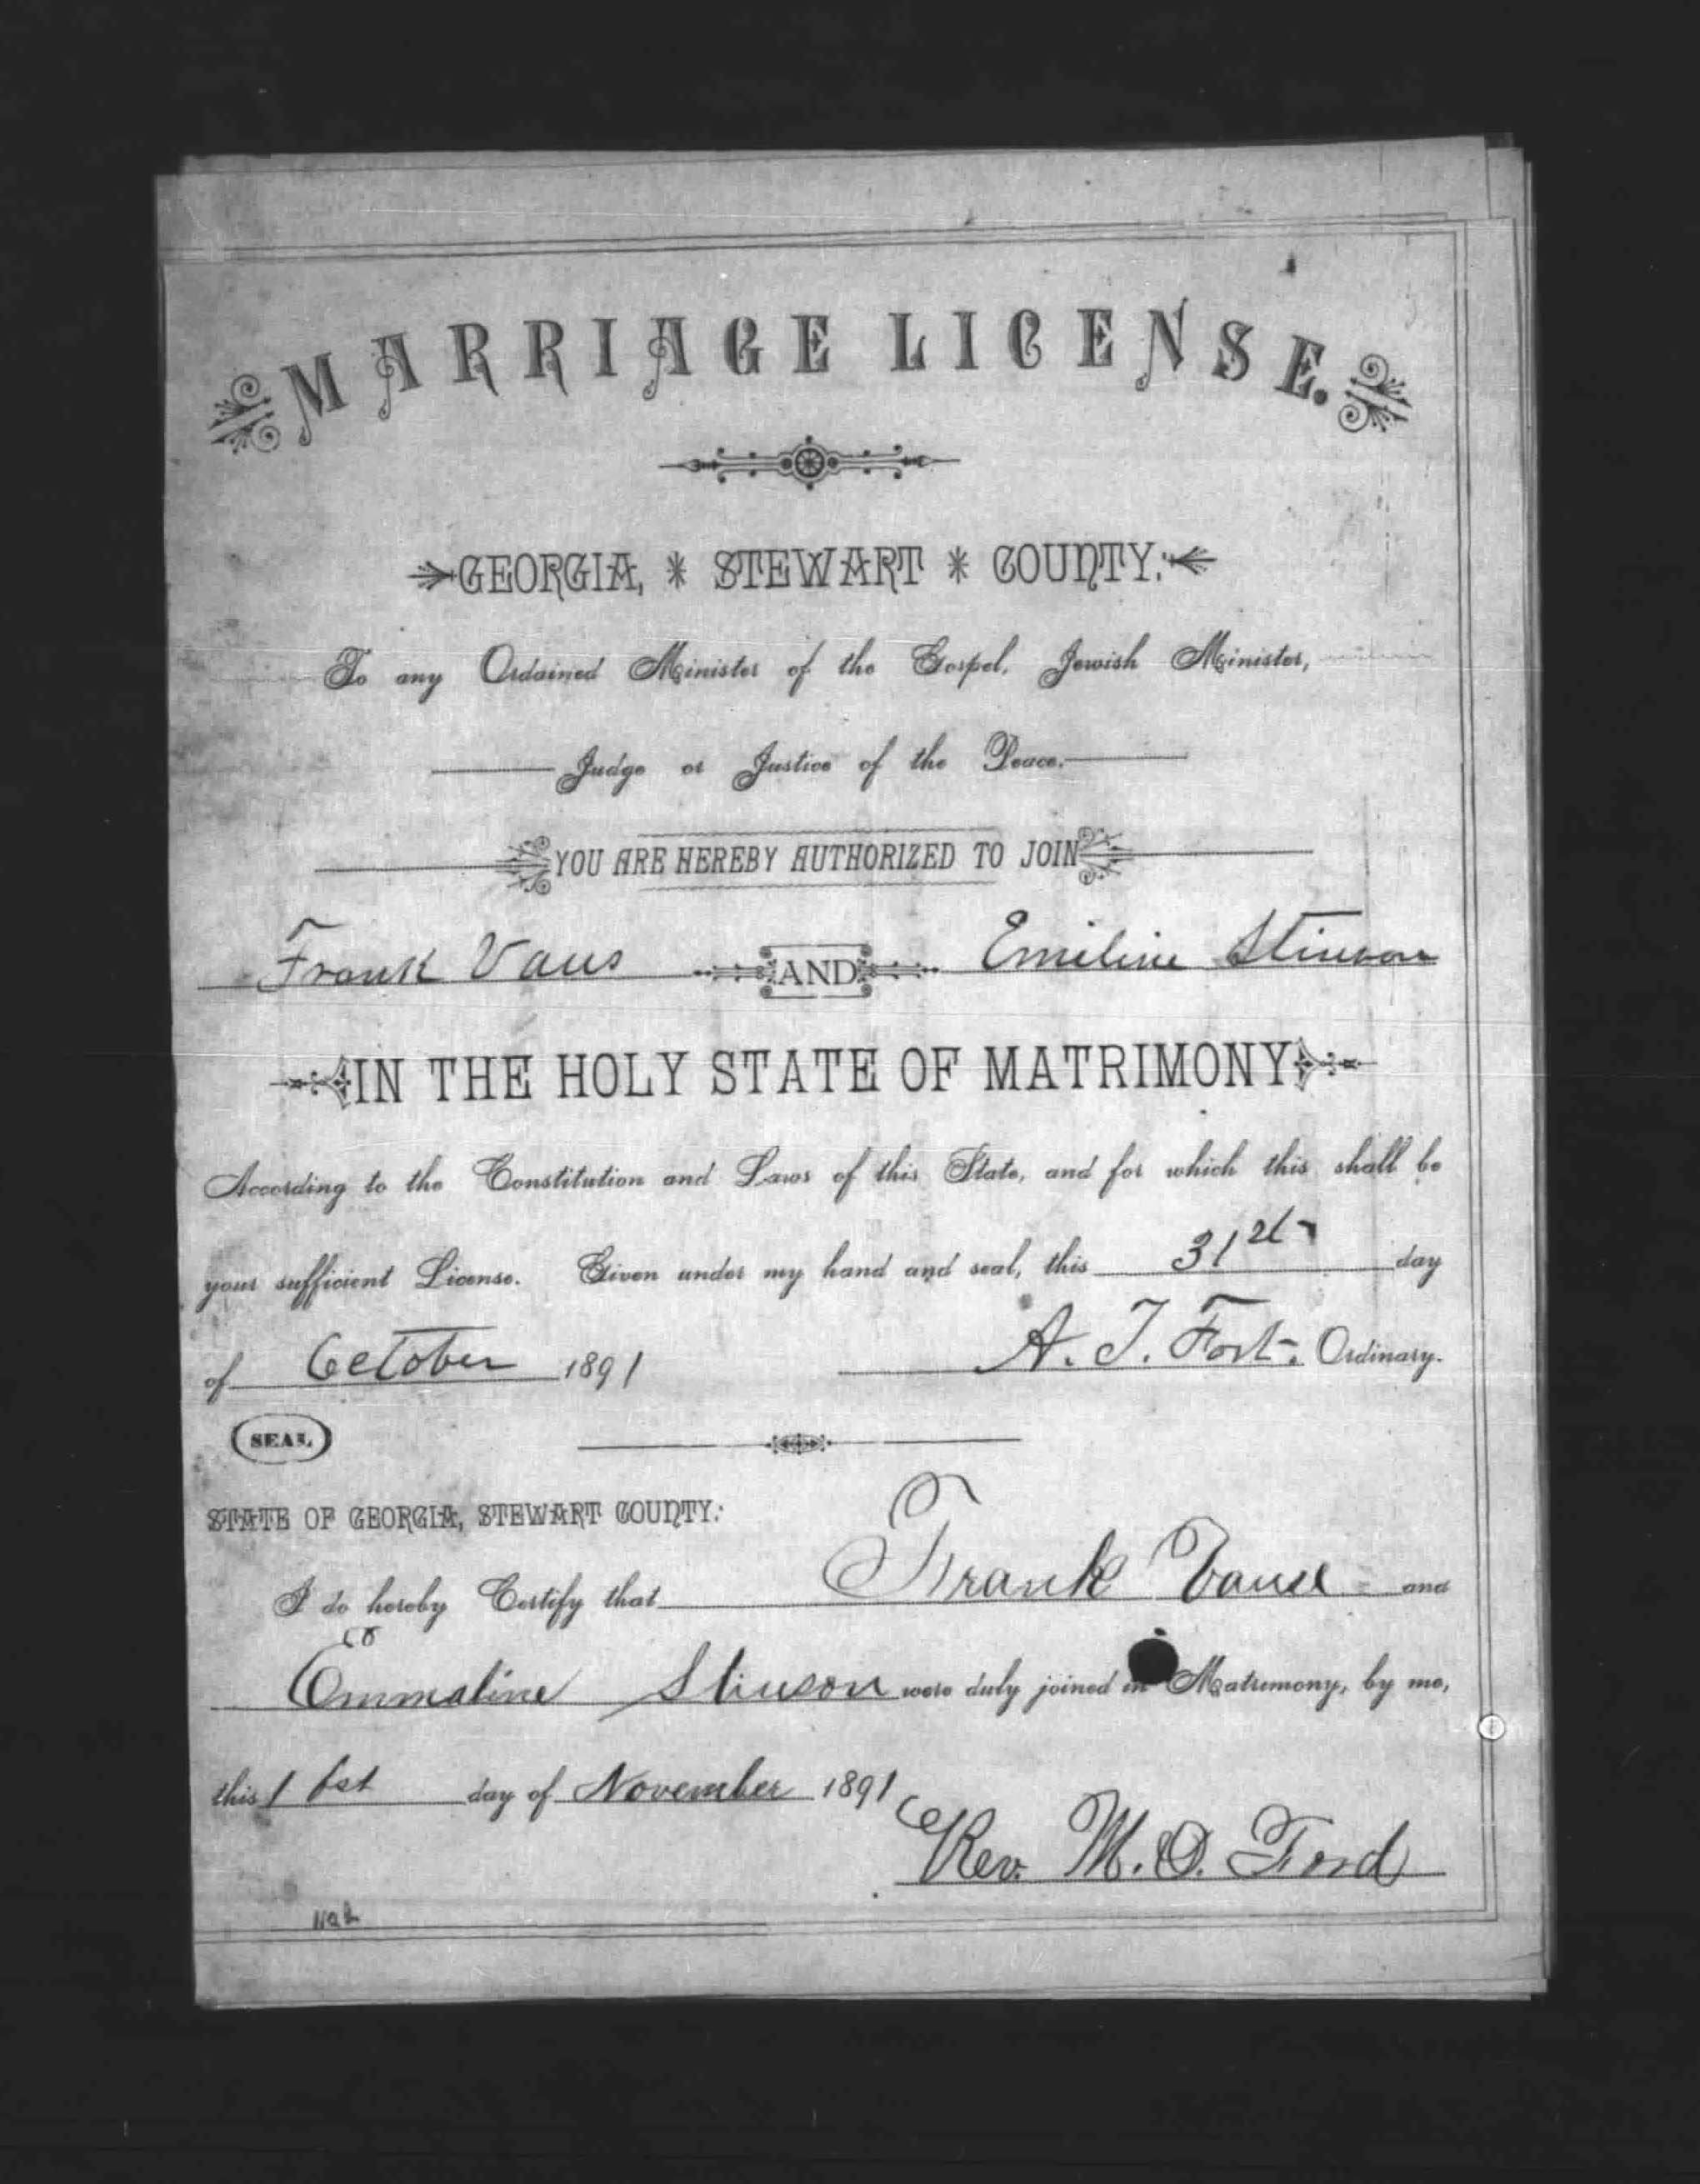 MARRIAGE LICENSE.
GEORGIA, * STEWART * COUNTY:
To any Ordained Minister of the Gospel, Jewish Minister,
Judge or Justice of the Peace.
YOU ARE HEREBY AUTHORIZED TO JOIN
Frank Vaus AND Emiline Stinson
IN THE HOLY STATE OF MATRIMONY
According to the Constitution and Laws of this State, and for which this shall be
your sufficient License. Given under my hand and seal, this 31st day
of October 1891 A. T. Fort. Ordinary.
SEAL
STATE OF GEORGIA, STEWART COUNTY:
I do hereby Certify that Frank Vause and
Emmaline Stinson were duly joined in Matrimony, by me,
this 1 day of November 1891
Rev. M. O. Ford